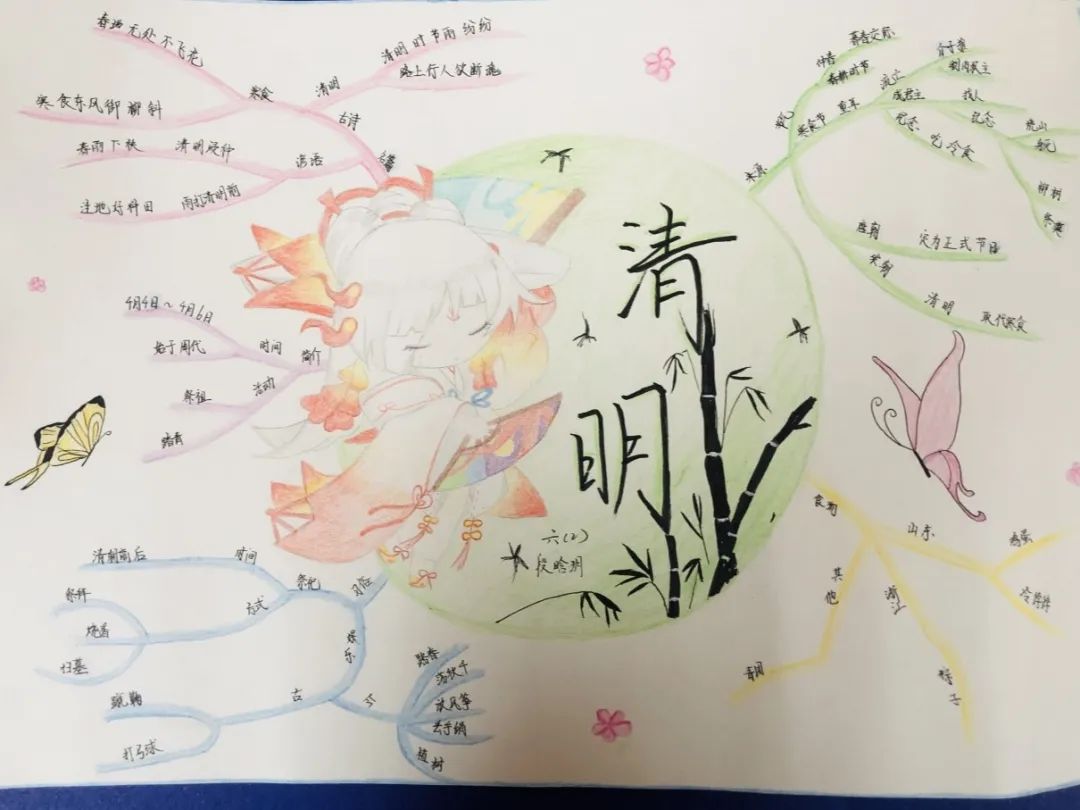 清明
六(2)
古诗
寒食
春城无处不飞花
寒食东风御柳斜
清明
清明时节雨纷纷
路上行人欲断魂
谚语
清明
雨打清明前
洼地好种田
简介
时间
4月4日~4月6日
始于周代
活动
祭祖
踏青
习俗
祭祀
时间
清明前后
方式
祭拜
扫墓
娱乐
古
蹴鞠
打马球
今
踏春
荡秋千
放风筝
植树
来源
寒食节
重耳
流亡
介子推
割肉
成君主
找人
纪念
吃冷食
烧山
柳树
春耕时节
唐朝
定为正式节日
宋朝
清明
取代寒食
食物
山东
鸡蛋
冷饽饽
浙江
其他
青团